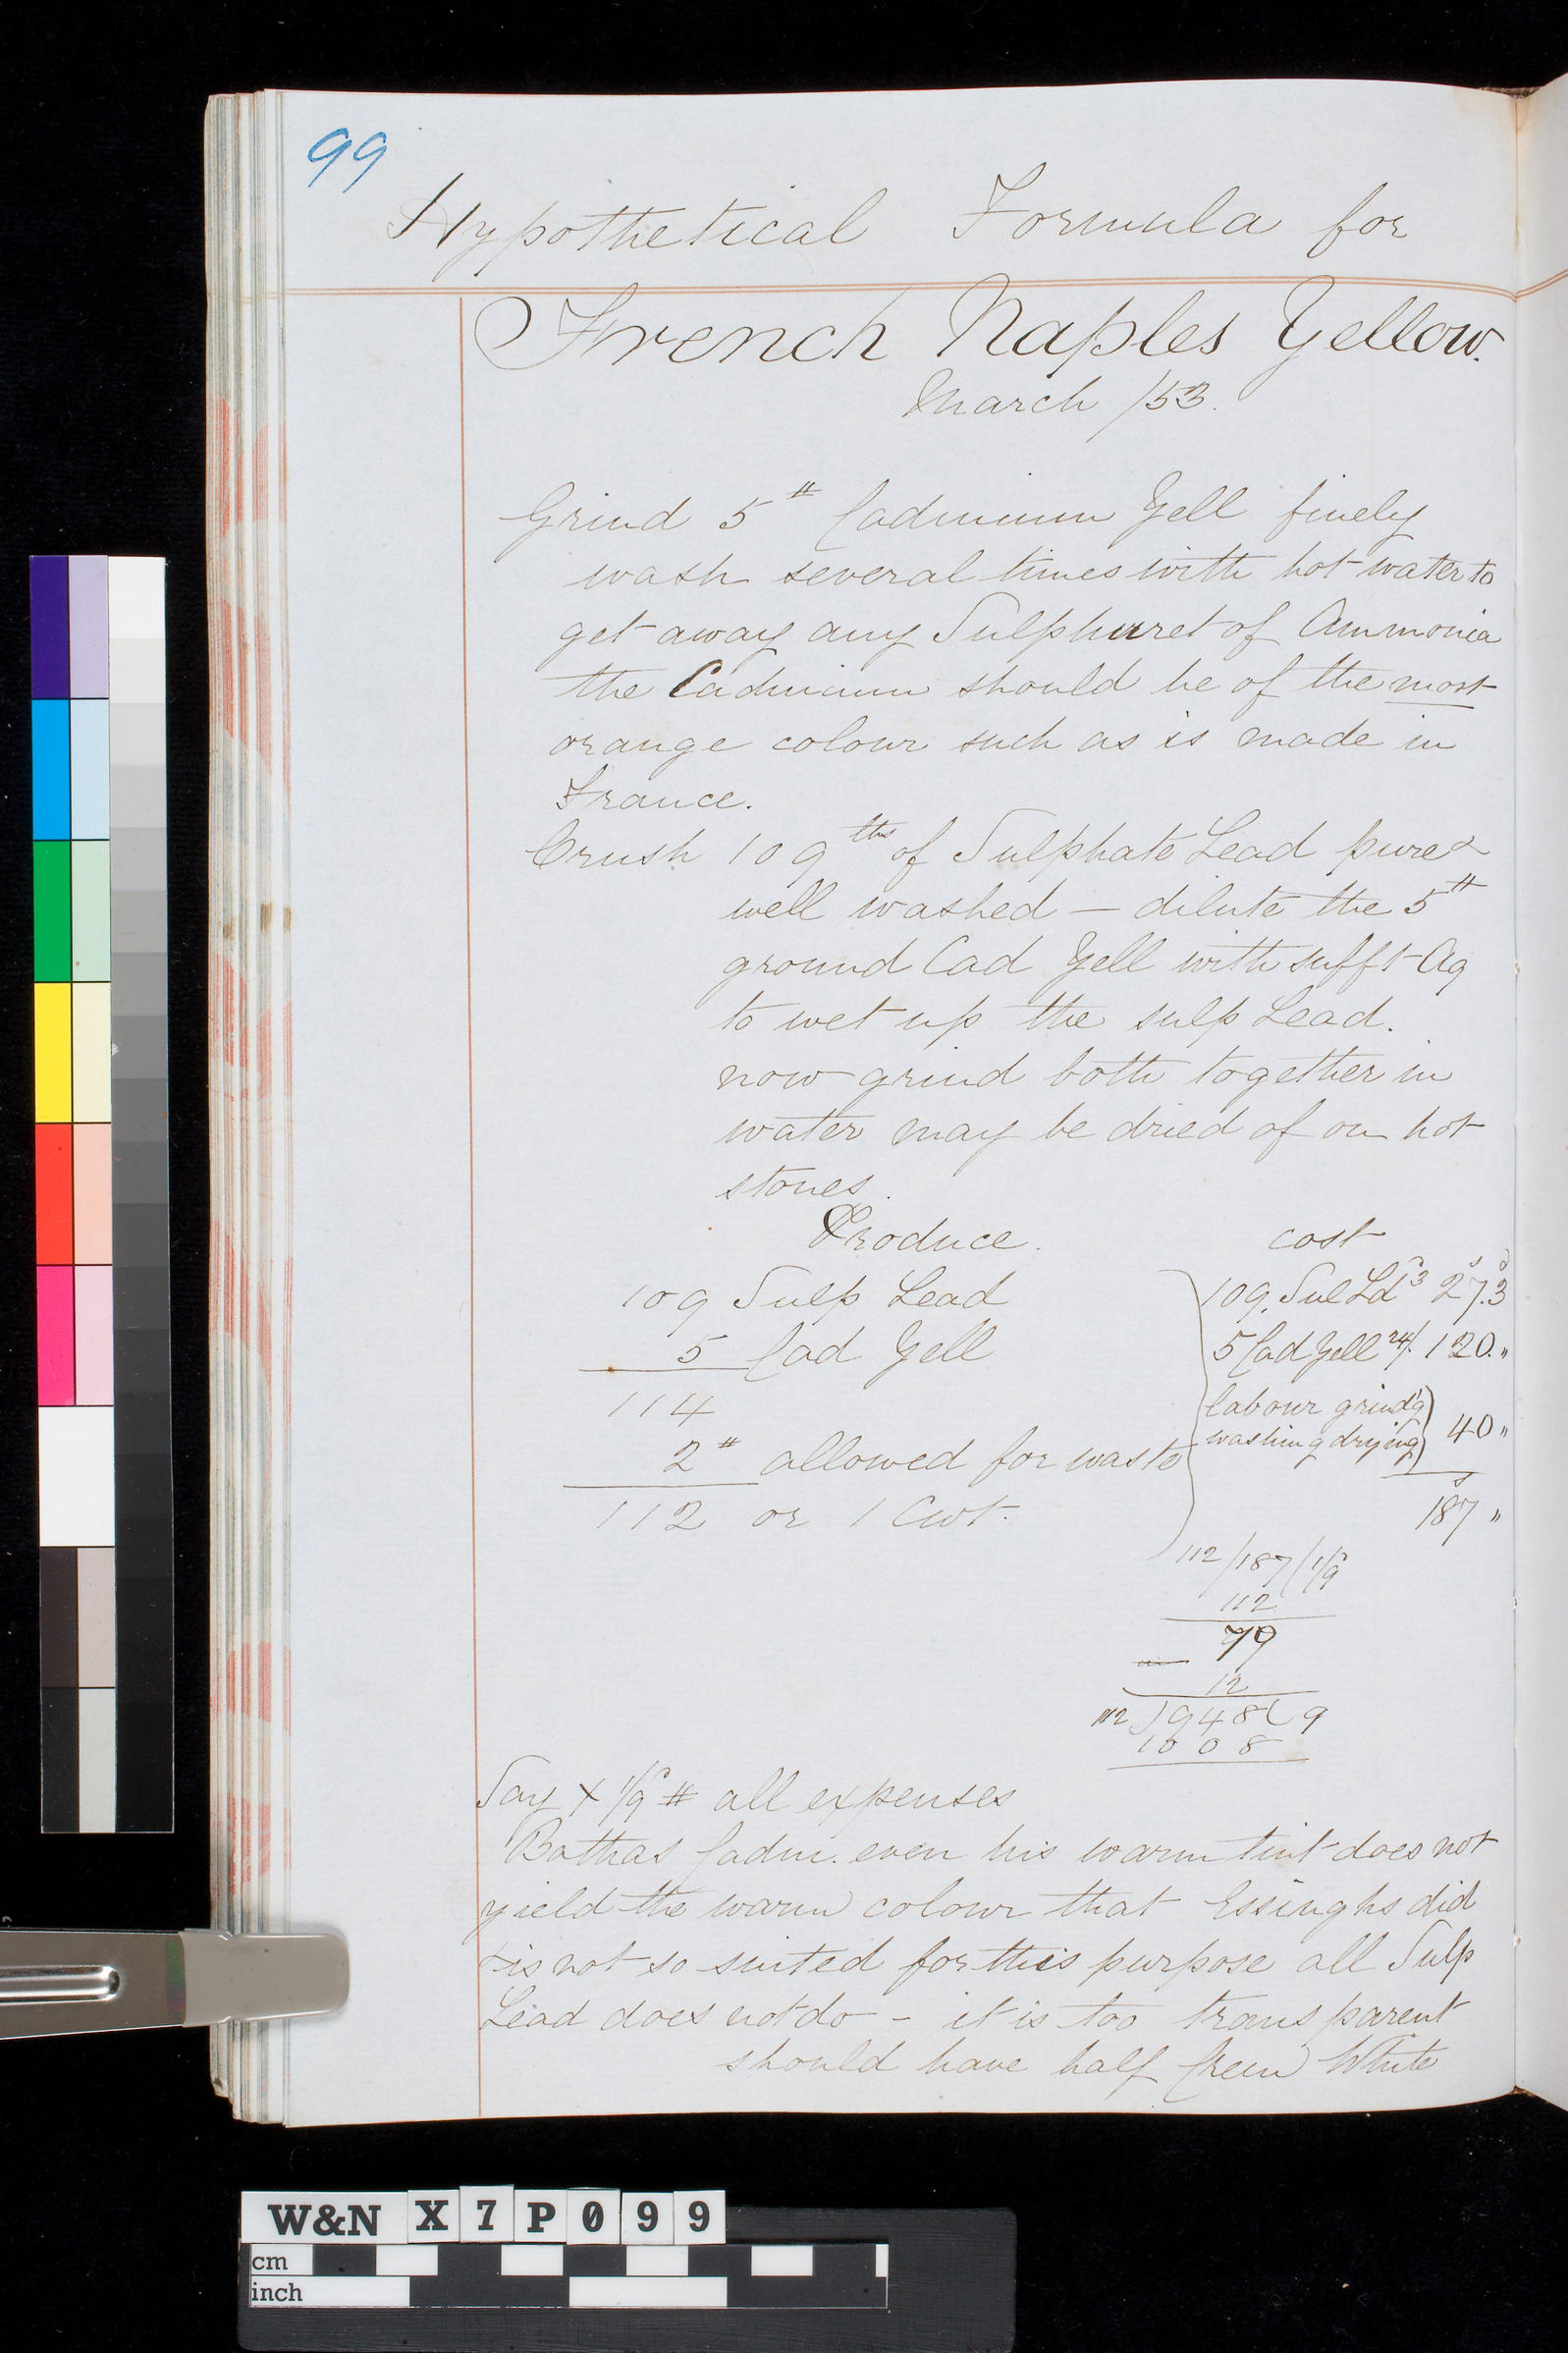 99
Hypothetical Formula for
French Naples Yellow.
March /53.
Grind 5# Cadmium Yell finely
wash several times with hot water to
get away any Sulphuret of Ammonia
the Cadmium should be of the most
orange colour such as is made in
France.
Crush 109 lbs of Sulphate Lead pure &
well washed — dilute the 5#
ground Cad Yell with sufft Aq
to wet up the sulp Lead.
now grind both together in
water may be dried of on hot
stones.
Produce. cost
109 Sulp Lead 109. Sul Ld 3 27.3
5 Cad Yell 5 Cad Yell 24/. 120."
114 labour grind'g
washing drying 40"
2# allowed for waste
112 or 1 Cwt. 187"
112/187(1/9
112
79
12
112)948(9
1008
Say + 1/9 # all expenses
Bathas Cadm. even his warm tint does not
yield the warm colour that Essinghs did
& is not so suited for this purpose all Sulp
Lead does not do - it is too transparent
should have half Krem White
W&N X7P099
cm
inch